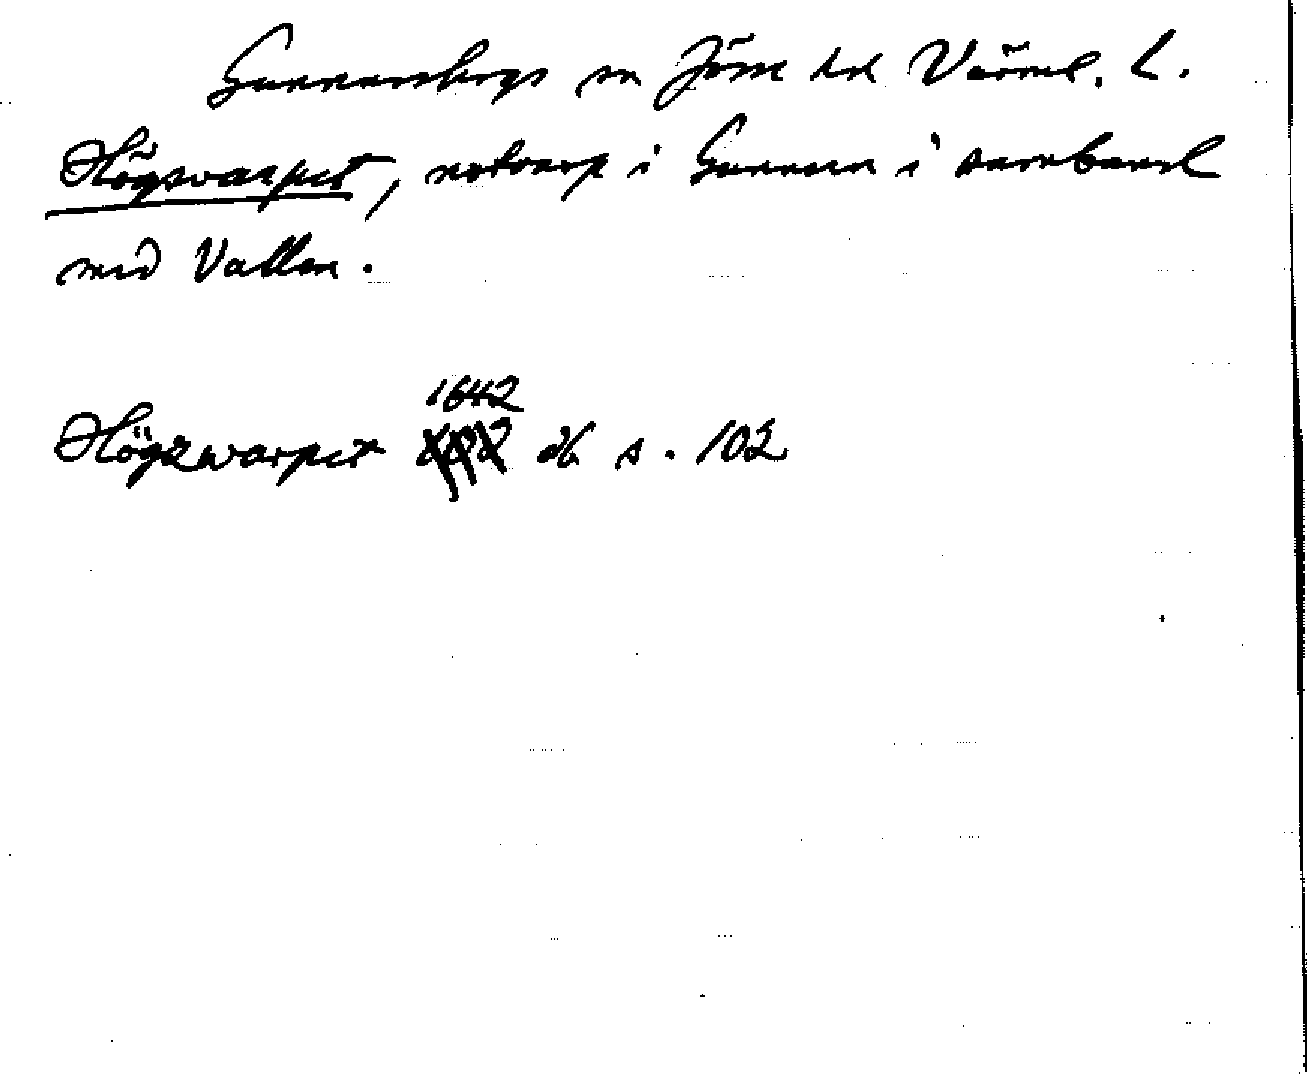 Gunnarskogs sn Jösse hd Värml. L.
Högsvarpet, notvarp i Gunnern i samband
med Vallen.
1642
Högzwarpet db s. 102